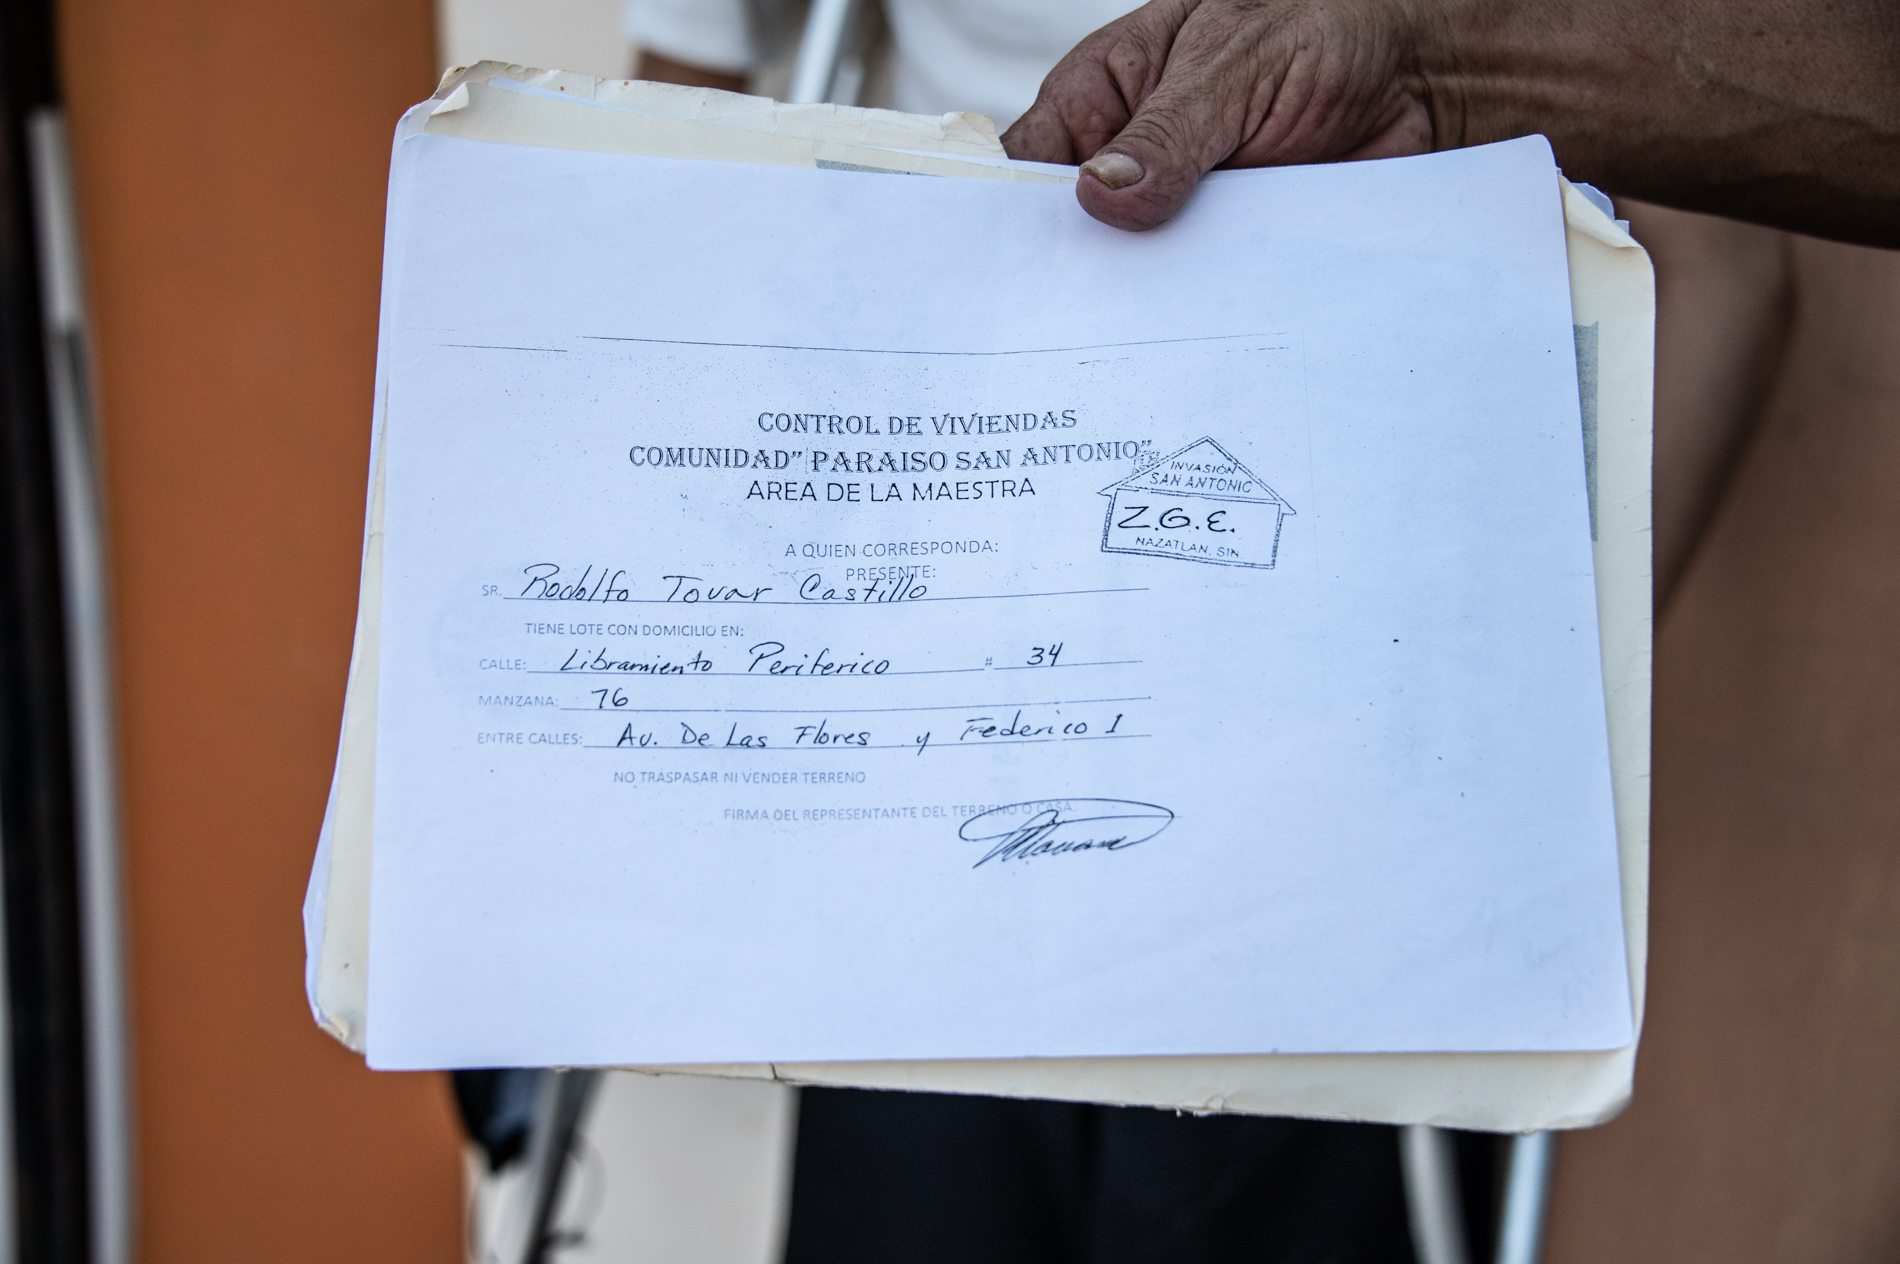 CONTROL DE VIVIENDAS
COMUNIDAD" PARAISO SAN ANTONIO"
AREA DE LA MAESTRA
INVASIÓN
SAN ANTONIO
Z.G.E.
MAZATLAN, SIN
A QUIEN CORRESPONDA:
PRESENTE:
SR. Rodolfo Tovar Castillo
TIENE LOTE CON DOMICILIO EN:
CALLE: Libramiento Periferico # 34
MANZANA: 76
ENTRE CALLES: Av. De Las Flores y Federico 1
NO TRASPASAR NI VENDER TERRENO
FIRMA DEL REPRESENTANTE DEL TERRENO O CASA